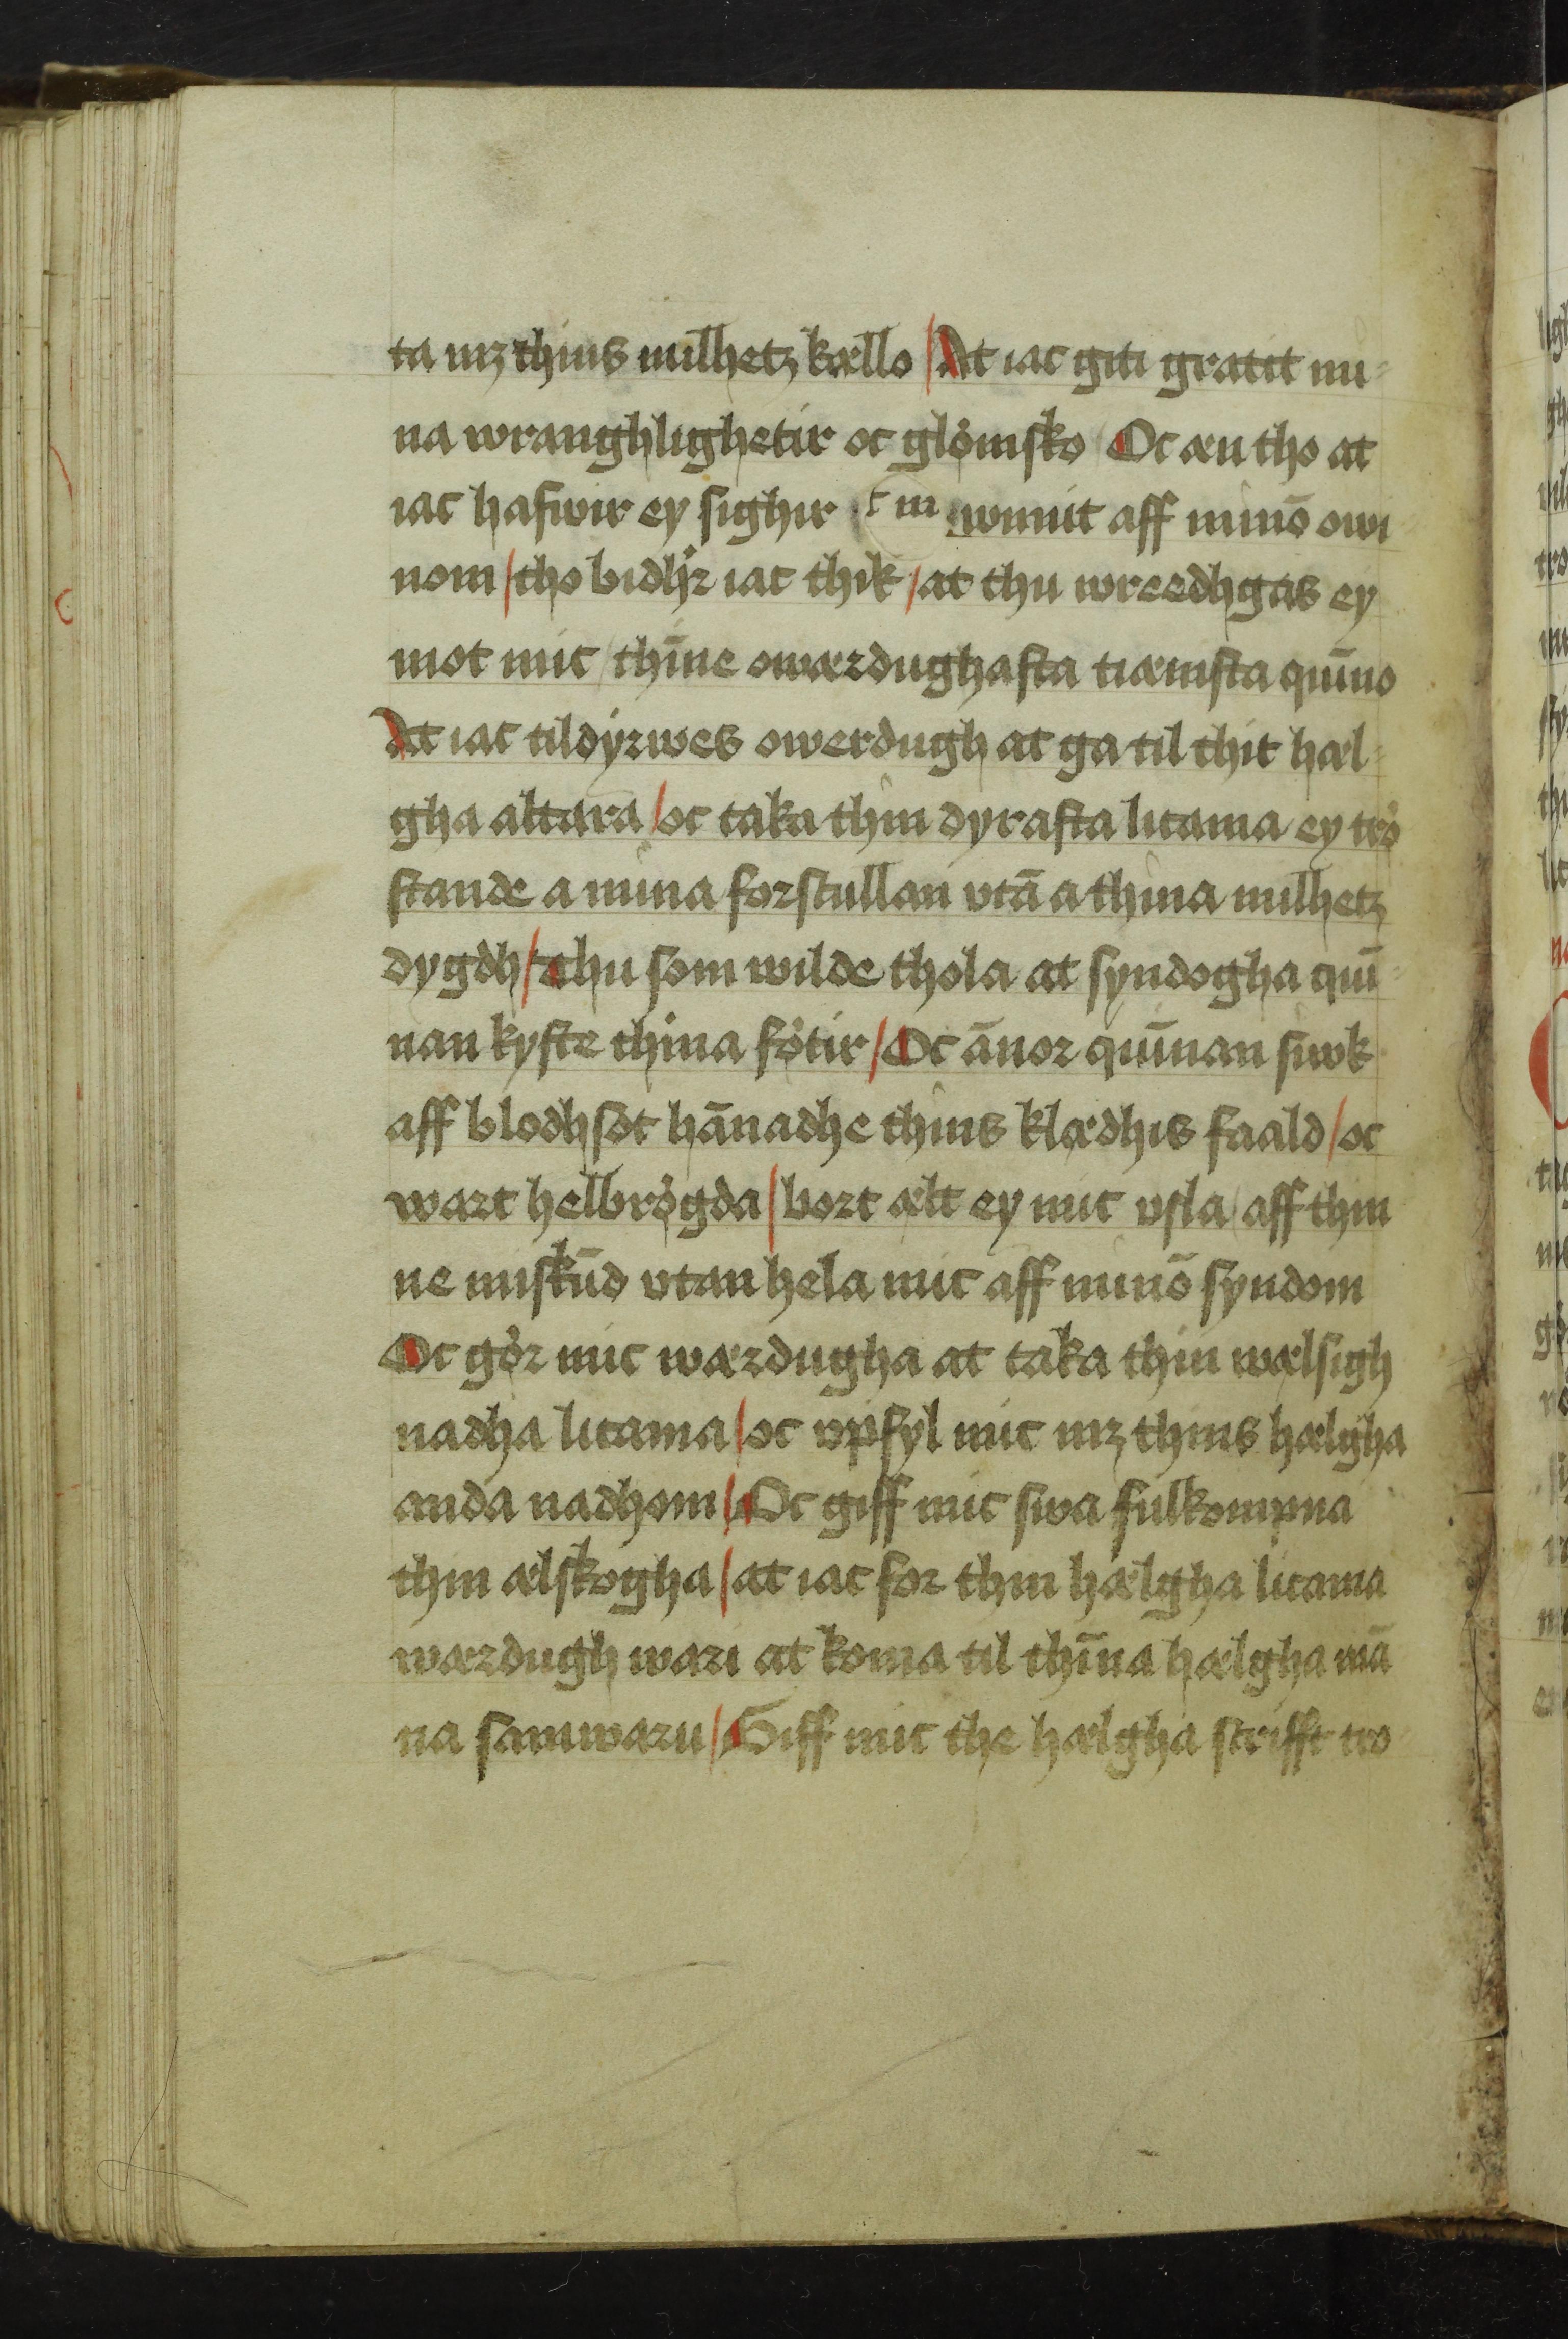 ta mꝫ thins milhetꝫ kællo / At iac giti gratit mi-
na wranghlighetir oc glømsko Oc æn tho at
iac hafwir ey sighir wunnit aff minō owi
nom / tho bidhꝛ iac thik / at thu wreedhgas ey
mot mic / thīne owærdughasta tiænista quīno
At iac tildyrwes owerdugh at ga til thit hæl-
gha altara / oc taka thin dyrasta licama ey trø
stande a mina forskullan vtā a thina milhetꝫ
dygdh / thu som wilde thola at syndogha quī-
nan kyste thina føtir / Oc ānor quīnan siwk
aff blodhsot hānadhe thins klædhis faald / oc
wart helbrøgda / bort ælt ey mic vsla / aff thin
ne miskūd vtan hela mic aff minō syndom
Oc gør mic wærdugha at taka thin wælsigh
nadha licama / oc vpfyl mic mꝫ thins hælgha
anda nadhom / Oc giff mic swa fulkompna
thin ælskogha / at iac for thin hælgha licama
wærdugh wari at koma til thīna hælgha mā
na samwaru / Giff mic the hælgha scrifft tro